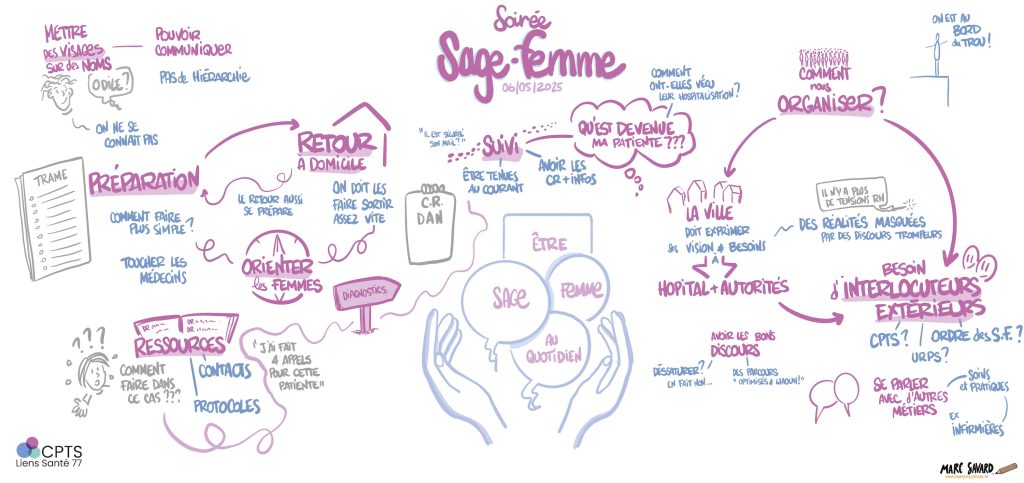 Soirée
Sage-Femme
06/05/2025
METTRE
DES VISAGES
SUR des NOMS
POUVOIR
COMMUNIQUER
PAS de HIÉRARCHIE
ODILE?
ON NE SE
CONNAIT PAS
TRAME
PRÉPARATION
COMMENT FAIRE
PLUS SIMPLE?
TOUCHER LES
MÉDECINS
RETOUR
À DOMICILE
LE RETOUR AUSSI
SE PRÉPARE
ON DOIT LES
FAIRE SORTIR
ASSEZ VITE
ORIENTER
les FEMMES
C.R.
DAN
DIAGNOSTICS
RESSOURCES
CONTACTS
PROTOCOLES
???
COMMENT
FAIRE DANS
CE CAS ???
"J'AI FAIT
4 APPELS
POUR CETTE
PATIENTE"
"IL EST SÉCURISÉ
SON MAIL?"
SUIVI
ÊTRE TENUES
AU COURANT
AVOIR LES
CR + INFOS
QU'EST DEVENUE
MA PATIENTE???
COMMENT
ONT-ELLES VÉCU
LEUR HOSPITALISATION?
ÊTRE
SAGE
FEMME
AU
QUOTIDIEN
COMMENT
nous
ORGANISER?
ON EST AU
BORD
du TROU!
LA VILLE
DOIT EXPRIMER
ses VISION & BESOINS
À
HOPITAL + AUTORITÉS
IL N'Y A PLUS
DE TENSIONS RH
DES RÉALITÉS MASQUÉES
PAR DES DISCOURS TROMPEURS
BESOIN
d'INTERLOCUTEURS
EXTÉRIEURS
CPTS?
URPS?
ORDRE des S.F.?
AVOIR LES BONS
DISCOURS
DÉSATURER?
EN FAIT NON...
DES PARCOURS
"OPTIMISÉS & WAOUH!"
SE PARLER
AVEC d'AUTRES
MÉTIERS
SOINS
et PRATIQUES
EX
INFIRMIÈRES
CPTS
Liens Santé 77
MARC SAVARD